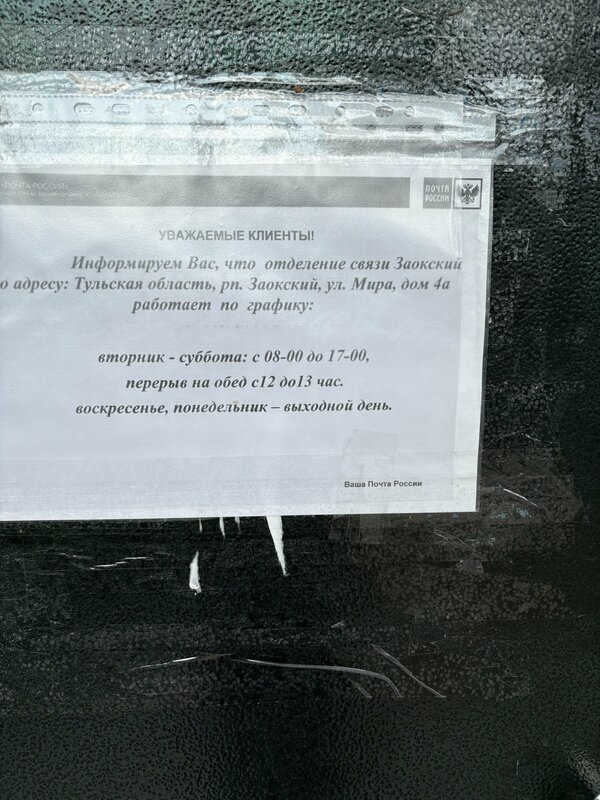 «ПОЧТА РОССИИ»
ПОЧТА
РОССИИ
УВАЖАЕМЫЕ КЛИЕНТЫ!
Информируем Вас, что отделение связи Заокский
о адресу: Тульская область, рп. Заокский, ул. Мира, дом 4а
работает по графику:
вторник - суббота: с 08-00 до 17-00,
перерыв на обед с12 до13 час.
воскресенье, понедельник – выходной день.
Ваша Почта России